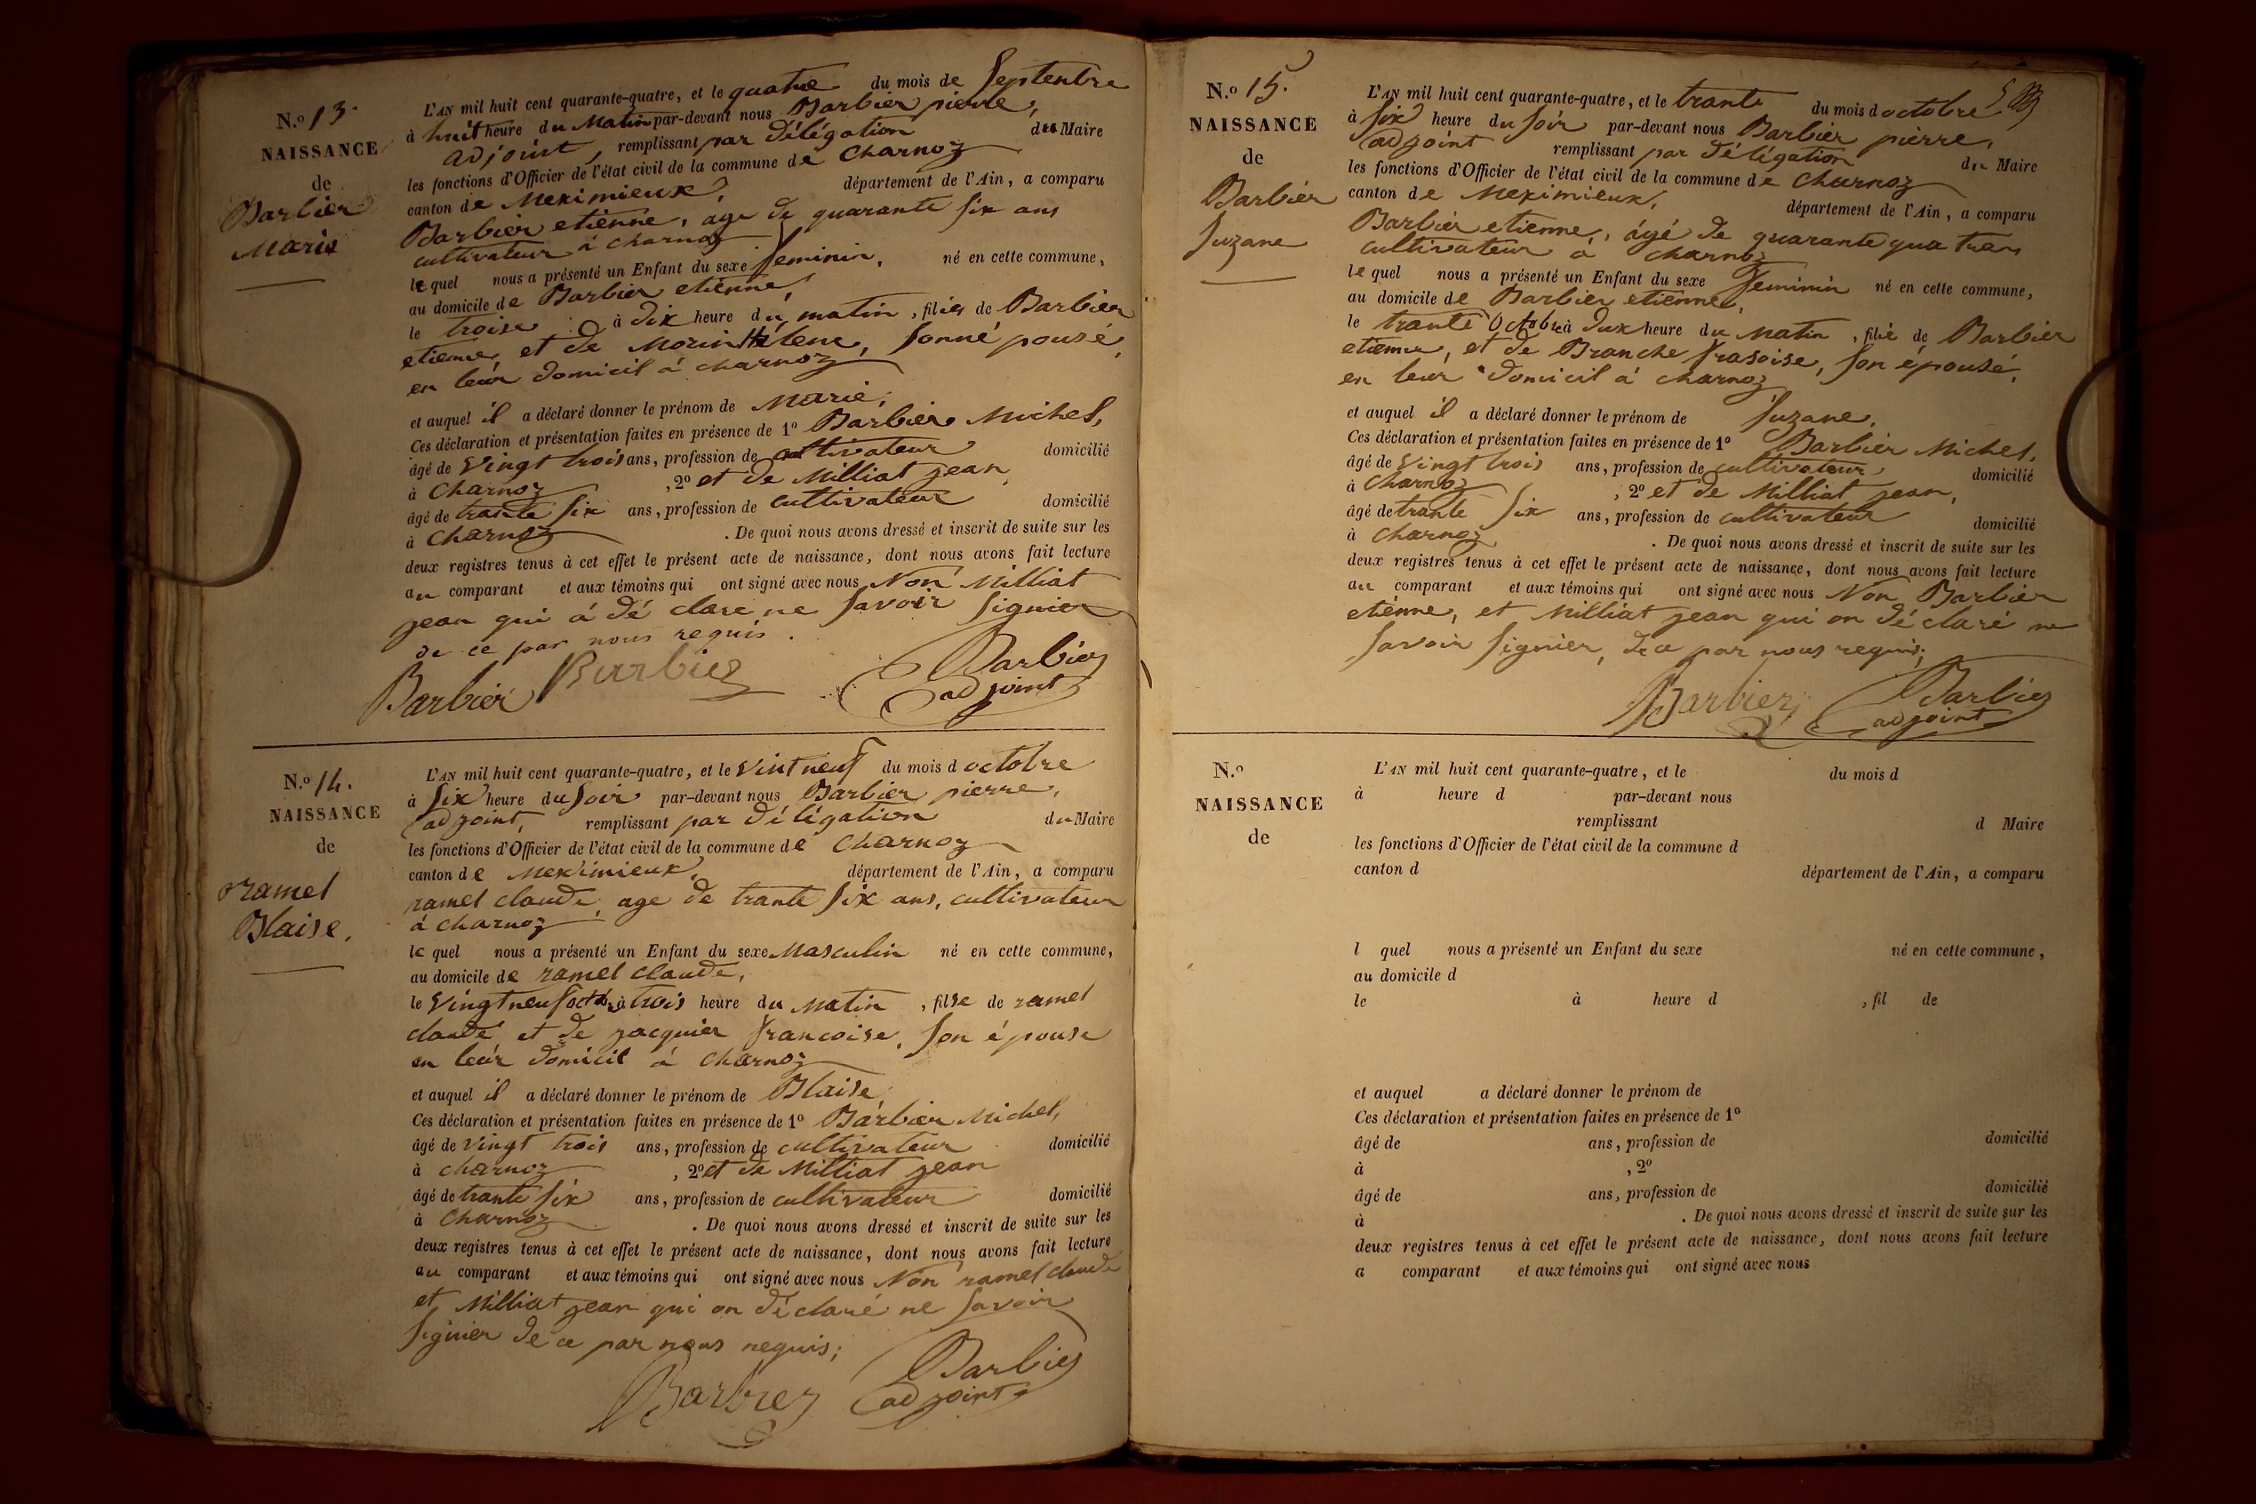 N.o 13.
NAISSANCE
de
Barbier
Marie
L'AN mil huit cent quarante-quatre, et le quatre du mois de Septenbre
à huit heure du Matin par-devant nous Barbier pierre,
adjoint, remplissant par délégation du Maire
les fonctions d'Officier de l'état civil de la commune de Charnoz
canton de Meximieux, département de l'Ain, a comparu
Barbier etienne, age de quarante six ans
cultivateur à charnoz
le quel nous a présenté un Enfant du sexe feminin, né en cette commune,
au domicile de Barbier etienne,
le troise à dix heure du matin, filie de Barbier
etienne et de Morin Hélene, sonné pousé,
en leur domicil à charnoz
et auquel il a déclaré donner le prénom de Marie,
Ces déclaration et présentation faites en présence de 1o Barbier Michel,
âgé de vingt trois ans, profession de cultivateur domicilié
à Charnoz, 2o et de Milliat jean,
âgé de trante six ans, profession de cultivateur domicilié
à Charnoz. De quoi nous avons dressé et inscrit de suite sur les
deux registres tenus à cet effet le présent acte de naissance, dont nous avons fait lecture
au comparant et aux témoins qui ont signé avec nous Non Milliat
jean qui à dé clare ne savoir signier
de ce par nous requis.
Barbier Barbier Barbier
adjoint
N.o 14.
NAISSANCE
de
ramel
Blaise.
L'AN mil huit cent quarante-quatre, et le vint neuf du mois d octobre
à six heure du soir par-devant nous Barbier pierre,
adjoint, remplissant par délégation du Maire
les fonctions d'Officier de l'état civil de la commune de Charnoz
canton de Meximieux, département de l'Ain, a comparu
ramel claude, age de trante six ans, cultivateur
à charnoz
le quel nous a présenté un Enfant du sexe Masculin né en cette commune,
au domicile de ramel claude,
le vingt neuf octb à trois heure du Matin, filse de ramel
claude et de jacquier francoise, son épouse
en leur domicil à charnoz
et auquel il a déclaré donner le prénom de Blaise,
Ces déclaration et présentation faites en présence de 1o Barbier Michel,
âgé de vingt trois ans, profession de cultivateur domicilié
à charnoz, 2o et de Milliat jean
âgé de trante six ans, profession de cultivateur domicilié
à Charnoz. De quoi nous avons dressé et inscrit de suite sur les
deux registres tenus à cet effet le présent acte de naissance, dont nous avons fait lecture
au comparant et aux témoins qui ont signé avec nous Non ramel claude
et Milliat jean qui on déclaré ne savoir
signier de ce par nous requis;
Barbier Barbier
adjoint
N.o 15.
NAISSANCE
de
Barbier
Suzane
L'AN mil huit cent quarante-quatre, et le trante du mois d octobre
à six heure du soir par-devant nous Barbier pierre,
adjoint remplissant par délégation du Maire
les fonctions d'Officier de l'état civil de la commune de Charnoz
canton de Meximieux, département de l'Ain, a comparu
Barbier etienne, àgé de quarante qua trans
cultivateur à charnoz
le quel nous a présenté un Enfant du sexe feminin né en cette commune,
au domicile de Barbier etienne,
le trante Octobre à dux heure du Matin, filie de Barbier
etienne, et de Branche frasoise, son épousé,
en leur domicil à charnoz
et auquel il a déclaré donner le prénom de Suzane,
Ces déclaration et présentation faites en présence de 1o Barbier Michel,
âgé de vingt trois ans, profession de cultivateur domicilié
à Charnoz, 2o et de Milliat jean,
âgé de trante six ans, profession de cultivateur domicilié
à Charnoz. De quoi nous avons dressé et inscrit de suite sur les
deux registres tenus à cet effet le présent acte de naissance, dont nous avons fait lecture
au comparant et aux témoins qui ont signé avec nous Non Barbier
etienne, et Milliat jean qui on déclaré ne
savoir signier, de ce par nous requis;
Barbier Barbier
adjoint
N.o
NAISSANCE
de
L'AN mil huit cent quarante-quatre, et le du mois d
à heure d par-devant nous
remplissant d Maire
les fonctions d'Officier de l'état civil de la commune d
canton d département de l'Ain, a comparu
l quel nous a présenté un Enfant du sexe né en cette commune,
au domicile d
le à heure d , fil de
et auquel a déclaré donner le prénom de
Ces déclaration et présentation faites en présence de 1o
âgé de ans, profession de domicilié
à , 2o
âgé de ans, profession de domicilié
à . De quoi nous avons dressé et inscrit de suite sur les
deux registres tenus à cet effet le présent acte de naissance, dont nous avons fait lecture
a comparant et aux témoins qui ont signé avec nous